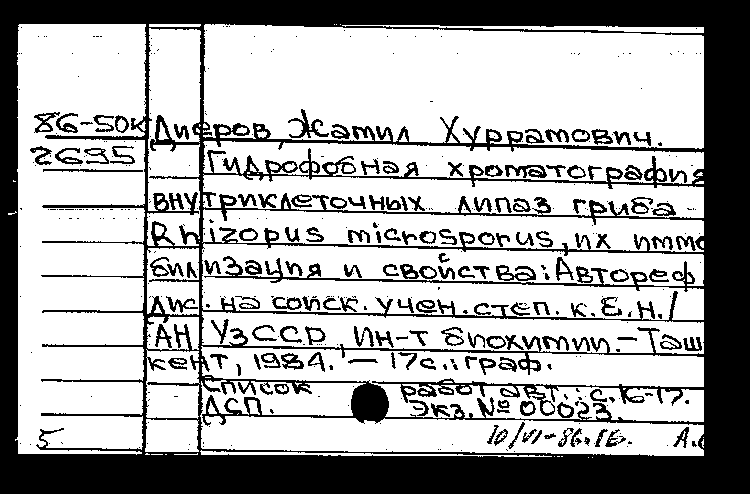 86-50к Диеров, Жамил Хурратович.
2695 Гидрофобная хроматография
внутриклеточных липаз гриба -
Rhizopus microsporus, их иммо
билизация и свойства: Автореф.
дис. на соиск. учен. степ. к.б.н./
АН УзССР, Ин-т биохимии. - Таш
кент, 1984. - 17с.: граф.
Список работ авт.: с.16-17.
ДСП. Экз. № 00023.
5 10/VI-86.